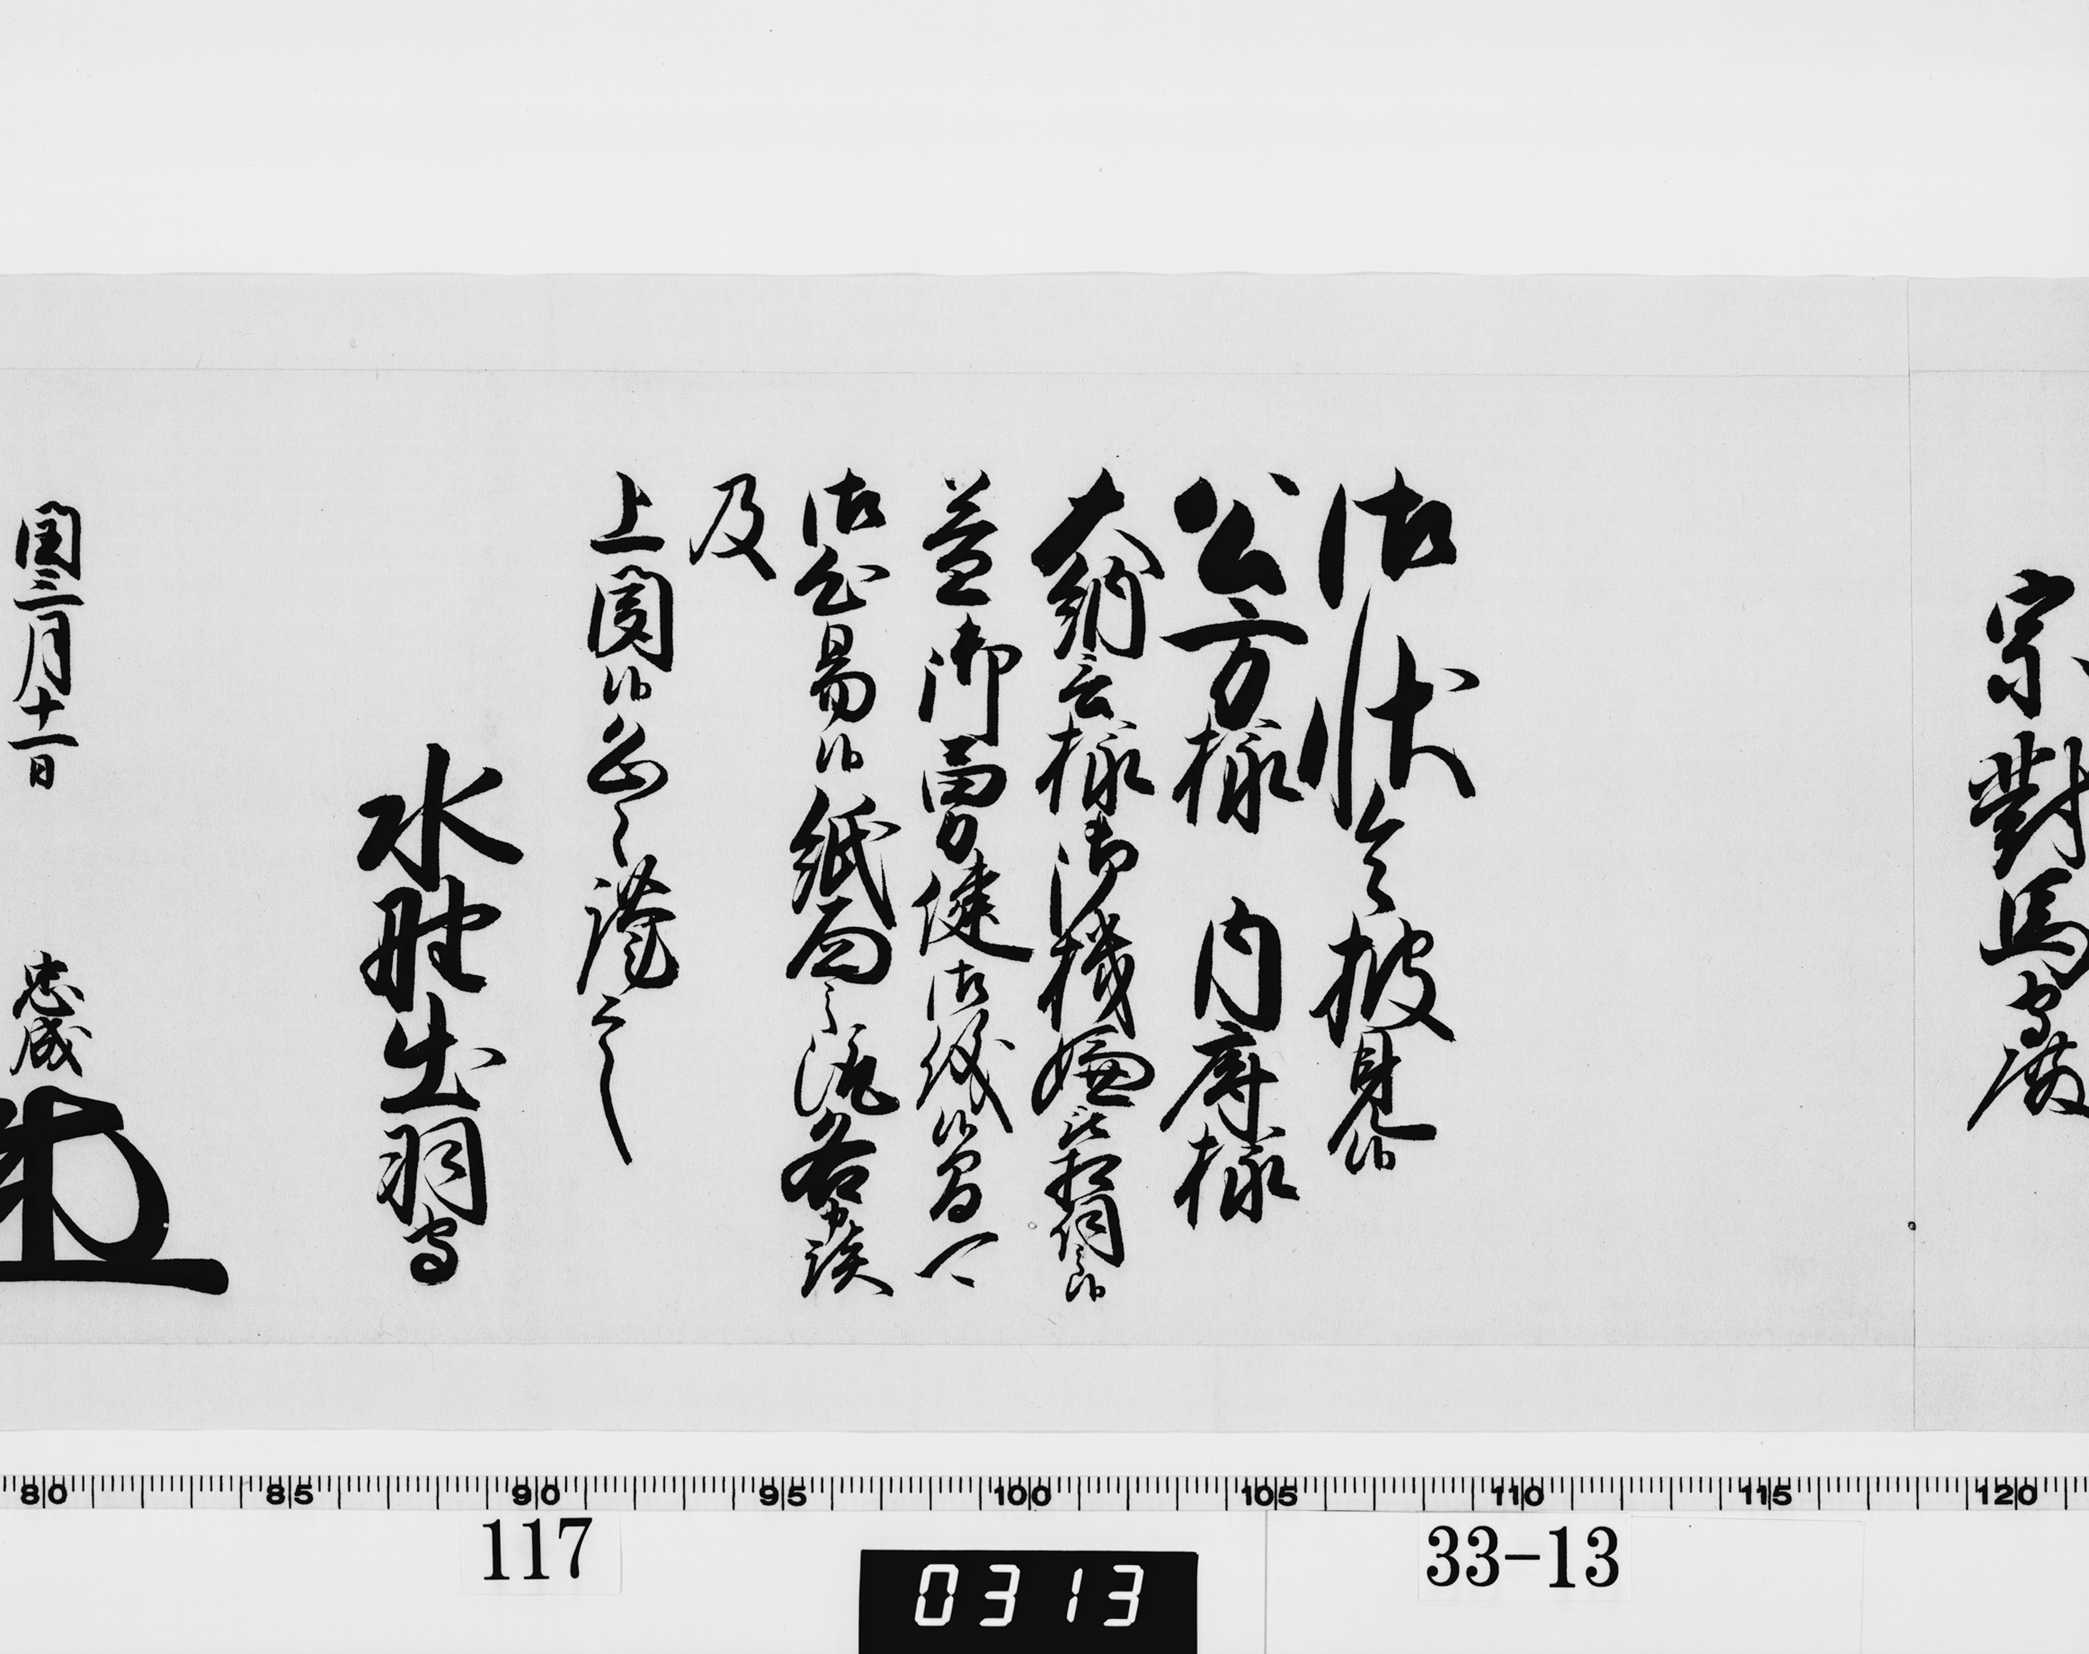 宗對馬守殿
御状令披見候
公方様 内府様
大納言様御機嫌被相伺候
益御勇健御儀候間可
御心易候紙面之趣各談
及
上聞候恐々謹言
水野出羽守
閏三月十一日 忠成
80 85 90 95 100 105 110 115 120
117
0313
33-13